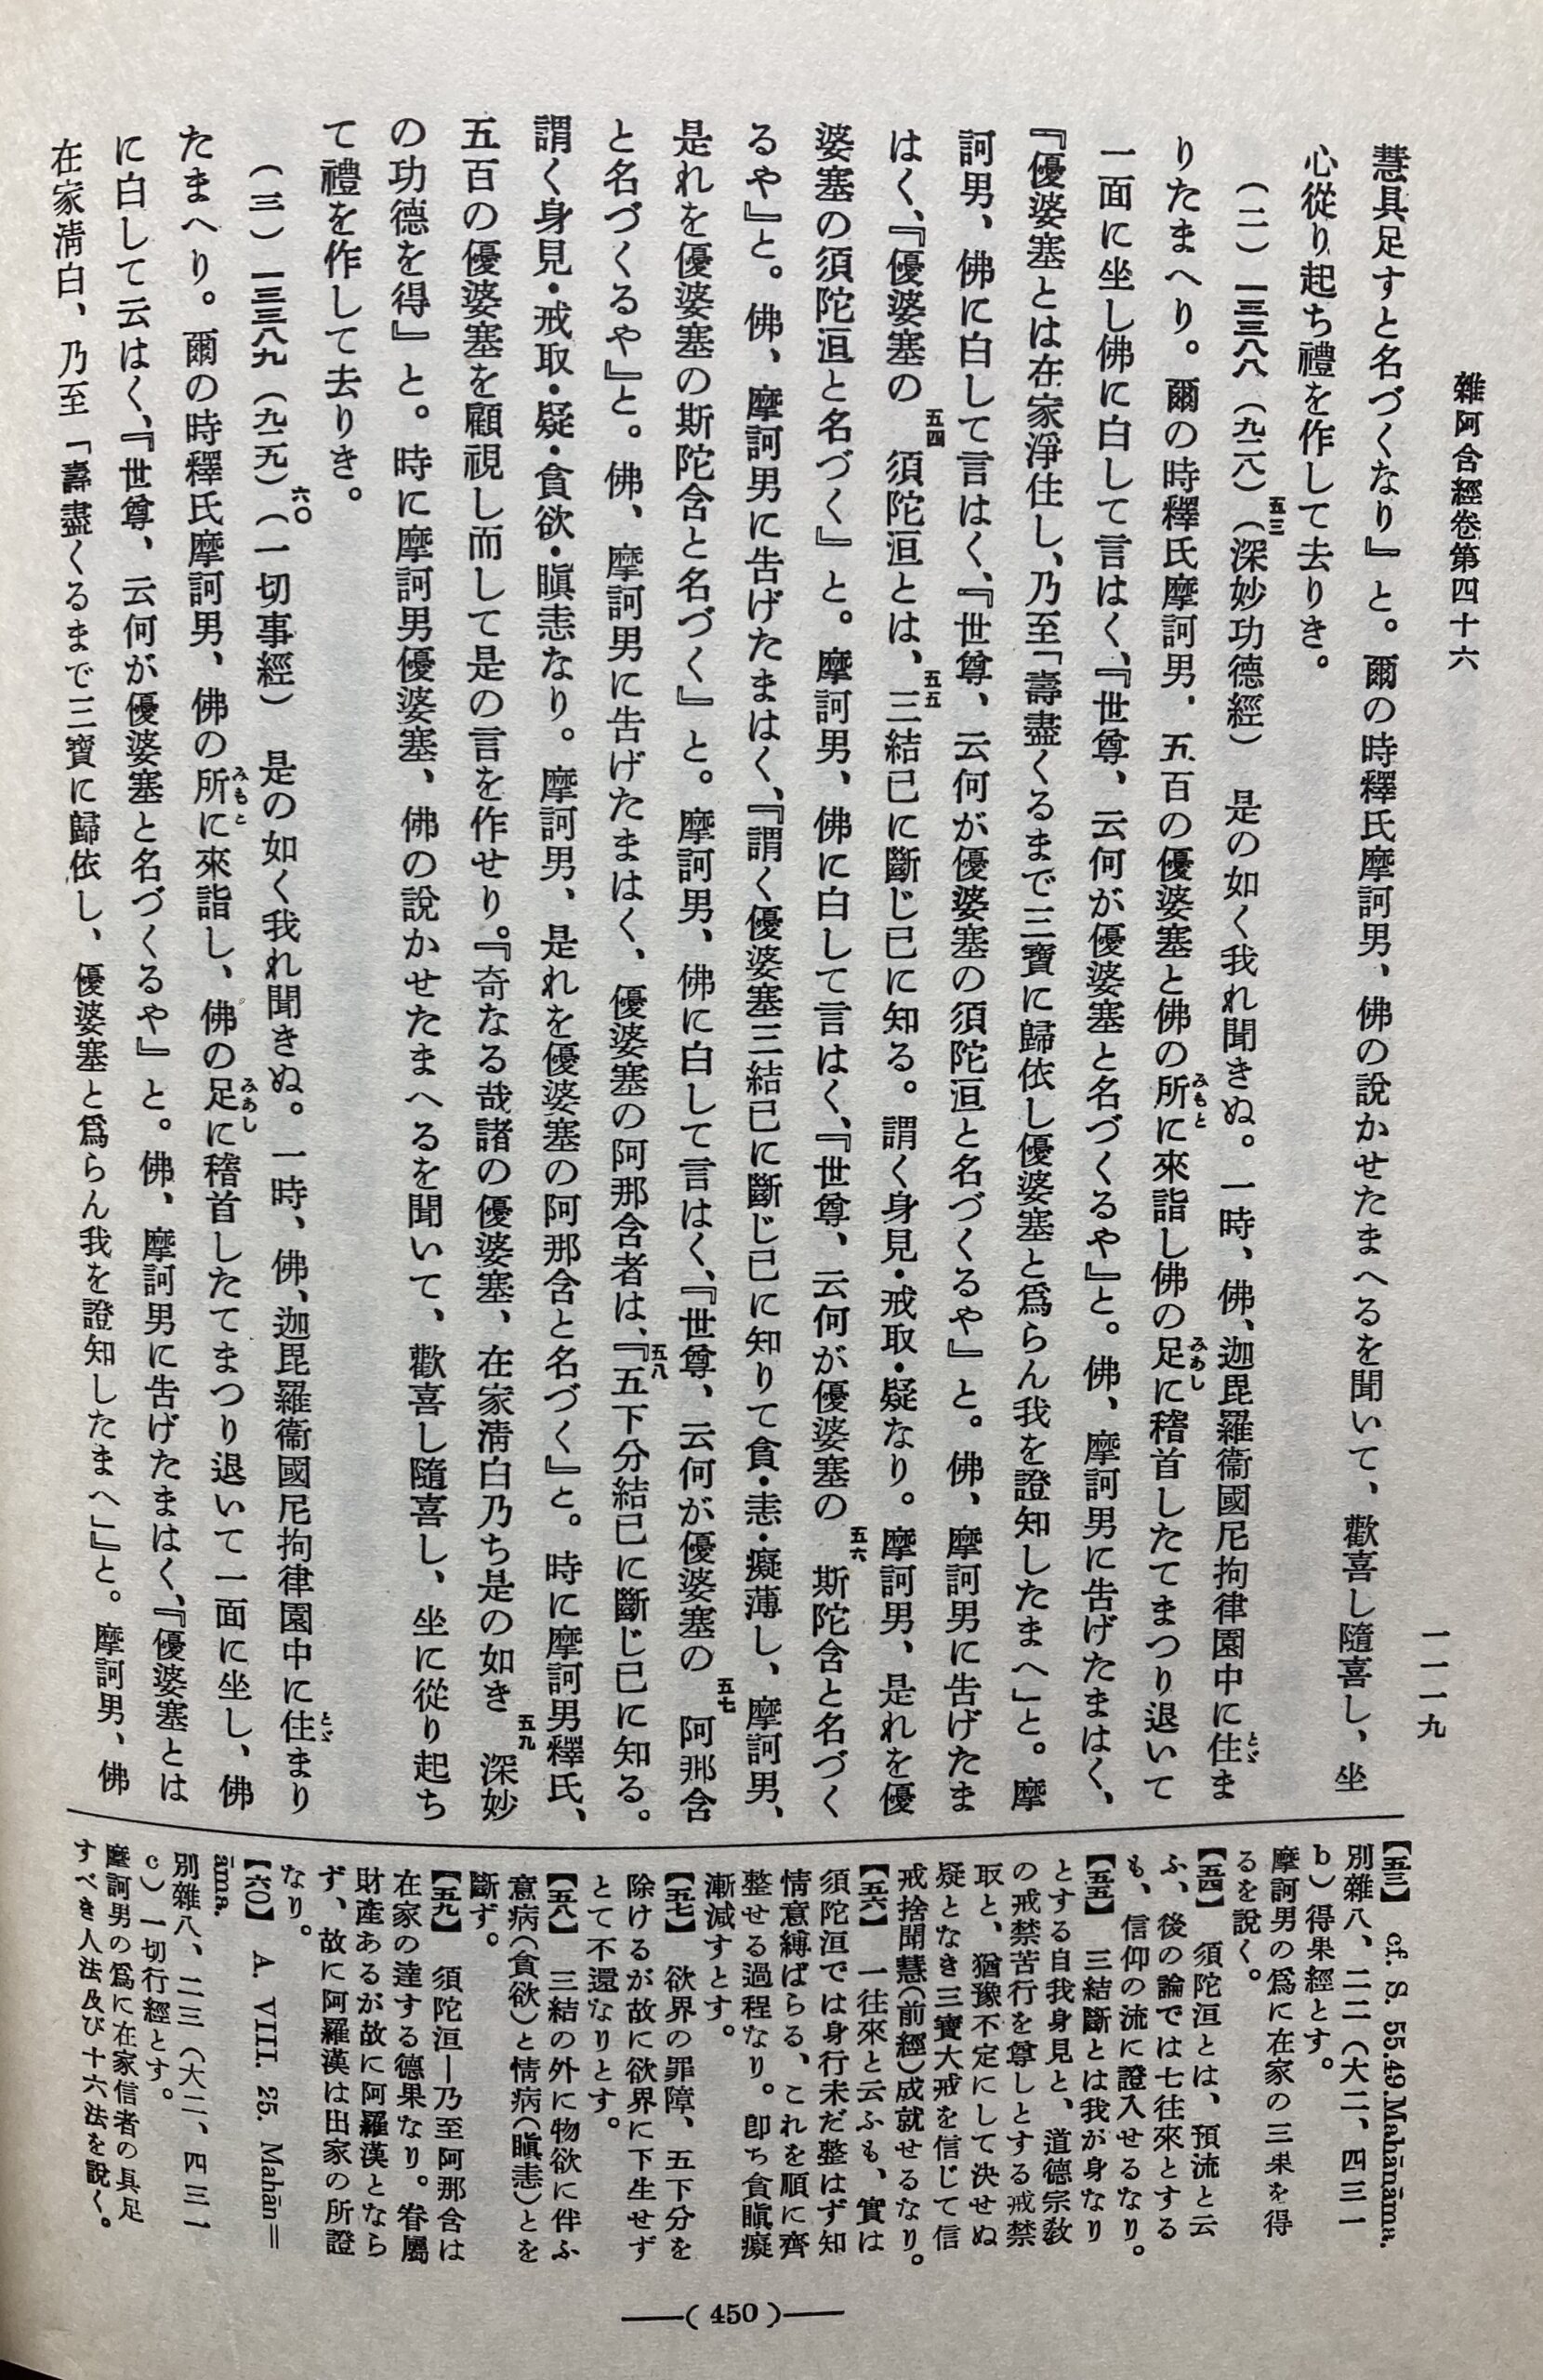 雜阿含經卷第四十六
一一一九
慧具足すと名づくなり』と。爾の時釋氏摩訶男、佛の說かせたまへるを聞いて、歡喜し隨喜し、坐
心從り起ち禮を作して去りき。
(二)一三三八八(九二八)(五三深妙功德經) 是の如く我れ聞きぬ。一時、佛、迦毘羅衞國尼拘律園中に住とゞま
りたまへり。爾の時釋氏摩訶男、五百の優婆塞と佛の所みもとに來詣し佛の足みあしに稽首したてまつり退いて
一面に坐し佛に白して言はく、『世尊、云何が優婆塞と名づくるや』と。佛、摩訶男に告げたまはく、
『優婆塞とは在家淨住し、乃至「壽盡くるまで三寶に歸依し優婆塞と爲らん我を證知したまへ」と。摩
訶男、佛に白して言はく、『世尊、云何が優婆塞の須陀洹と名づくるや』と。佛、摩訶男に告げたま
はく、『優婆塞の五四須陀洹とは、五五三結已に斷じ已に知る。謂く身見・戒取・疑なり。摩訶男、是れを優
婆塞の須陀洹と名づく』と。摩訶男、佛に白して言はく、『世尊、云何が優婆塞の五六斯陀含と名づく
るや』と。佛、摩訶男に告げたまはく、『謂く優婆塞三結已に斷じ已に知りて貪・恚・癡薄し、摩訶男、
是れを優婆塞の斯陀含と名づく』と。摩訶男、佛に白して言はく、『世尊、云何が優婆塞の五七阿那含
と名づくるや』と。佛、摩訶男に告げたまはく、優婆塞の阿那含者は、『五八五下分結已に斷じ已に知る。
謂く身見・戒取・疑・貪欲・瞋恚なり。摩訶男、是れを優婆塞の阿那含と名づく』と。時に摩訶男釋氏、
五百の優婆塞を顧視し而して是の言を作せり。『奇なる哉諸の優婆塞、在家淸白乃ち是の如き五九深妙
の功德を得』と。時に摩訶男優婆塞、佛の說かせたまへるを聞いて、歡喜し隨喜し、坐に從り起ち
て禮を作して去りき。
(三)一三三八九(九二九)(六〇一切事經) 是の如く我れ聞きぬ。一時、佛、迦毘羅衞國尼拘律園中に住とゞまり
たまへり。爾の時釋氏摩訶男、佛の所みもとに來詣し、佛の足みあしに稽首したてまつり退いて一面に坐し、佛
に白して云はく、『世尊、云何が優婆塞と名づくるや』と。佛、摩訶男に告げたまはく、『優婆塞とは
在家淸白、乃至「壽盡くるまで三寶に歸依し、優婆塞と爲らん我を證知したまへ」』と。摩訶男、佛
【五三】 cf. S. 55.49. Mahānāma.
別雜八、二二(大二、四三一
b)得果經とす。
摩訶男の爲に在家の三果を得
るを說く。
【五四】 須陀洹とは、預流と云
ふ、後の論では七往來とする
も、信仰の流に證入せるなり。
【五五】 三結斷とは我が身なり
とする自我身見と、道德宗敎
の戒禁苦行を尊しとする戒禁
取と、猶豫不定にして決せぬ
疑となき三寶大戒を信じて信
戒捨聞慧(前經)成就せるなり。
【五六】 一往來と云ふも、實は
須陀洹では身行未だ整はず知
情意縛ばらる、これを順に齊
整せる過程なり。卽ち貪瞋癡
漸減すとす。
【五七】 欲界の罪障、五下分を
除けるが故に欲界に下生せず
とて不還なりとす。
【五八】 三結の外に物欲に伴ふ
意病(貪欲)と情病(瞋恚)とを
斷ず。
【五九】 須陀洹—乃至阿那含は
在家の達する德果なり。眷屬
財產あるが故に阿羅漢となら
ず、故に阿羅漢は出家の所證
なり。
【六〇】 A. VIII. 25. Mahān=
āma.
別雜八、二三(大二、四三一
c)一切行經とす。
摩訶男の爲に在家信者の具足
すべき人法及び十六法を說く。
——( 450 )——